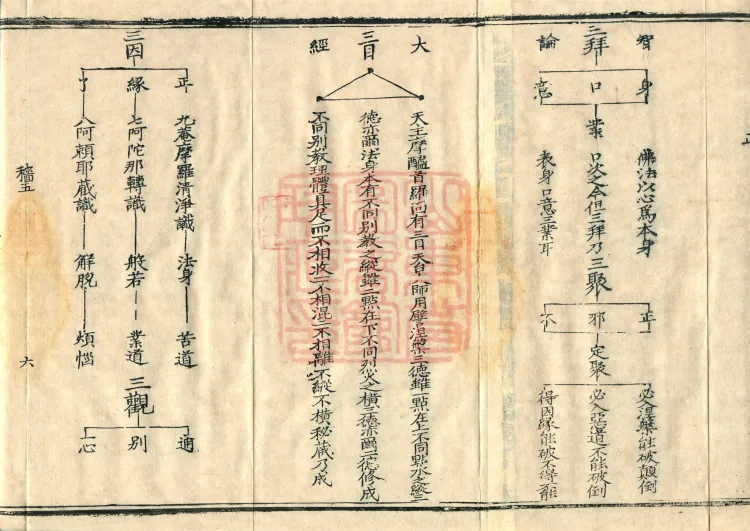 智 身 佛法以心為本身 正 必入涅槃能破顛倒
三拜 口業 口次之今但三拜乃三聚 邪定聚 必入惡道不能破倒
論 意 表身口意三業耳 不 得因緣能破不得
大 天王摩醯首羅面有三目天皇師用譬涅槃三德雖一點在上不同點水之縱三
三目 德亦爾法身本有不同別教之縱雖二點在下不同烈火之橫三德亦爾二德修成
經 不同別教理體具足而不相收一不相混三不相離不縱不橫秘藏乃成
正 九菴摩羅清淨識 法身 苦道 通
三因 緣 七阿陀那轉識 般若 業道 三觀 別
了 八阿賴耶藏識 解脫 煩惱 一心
穡五 六